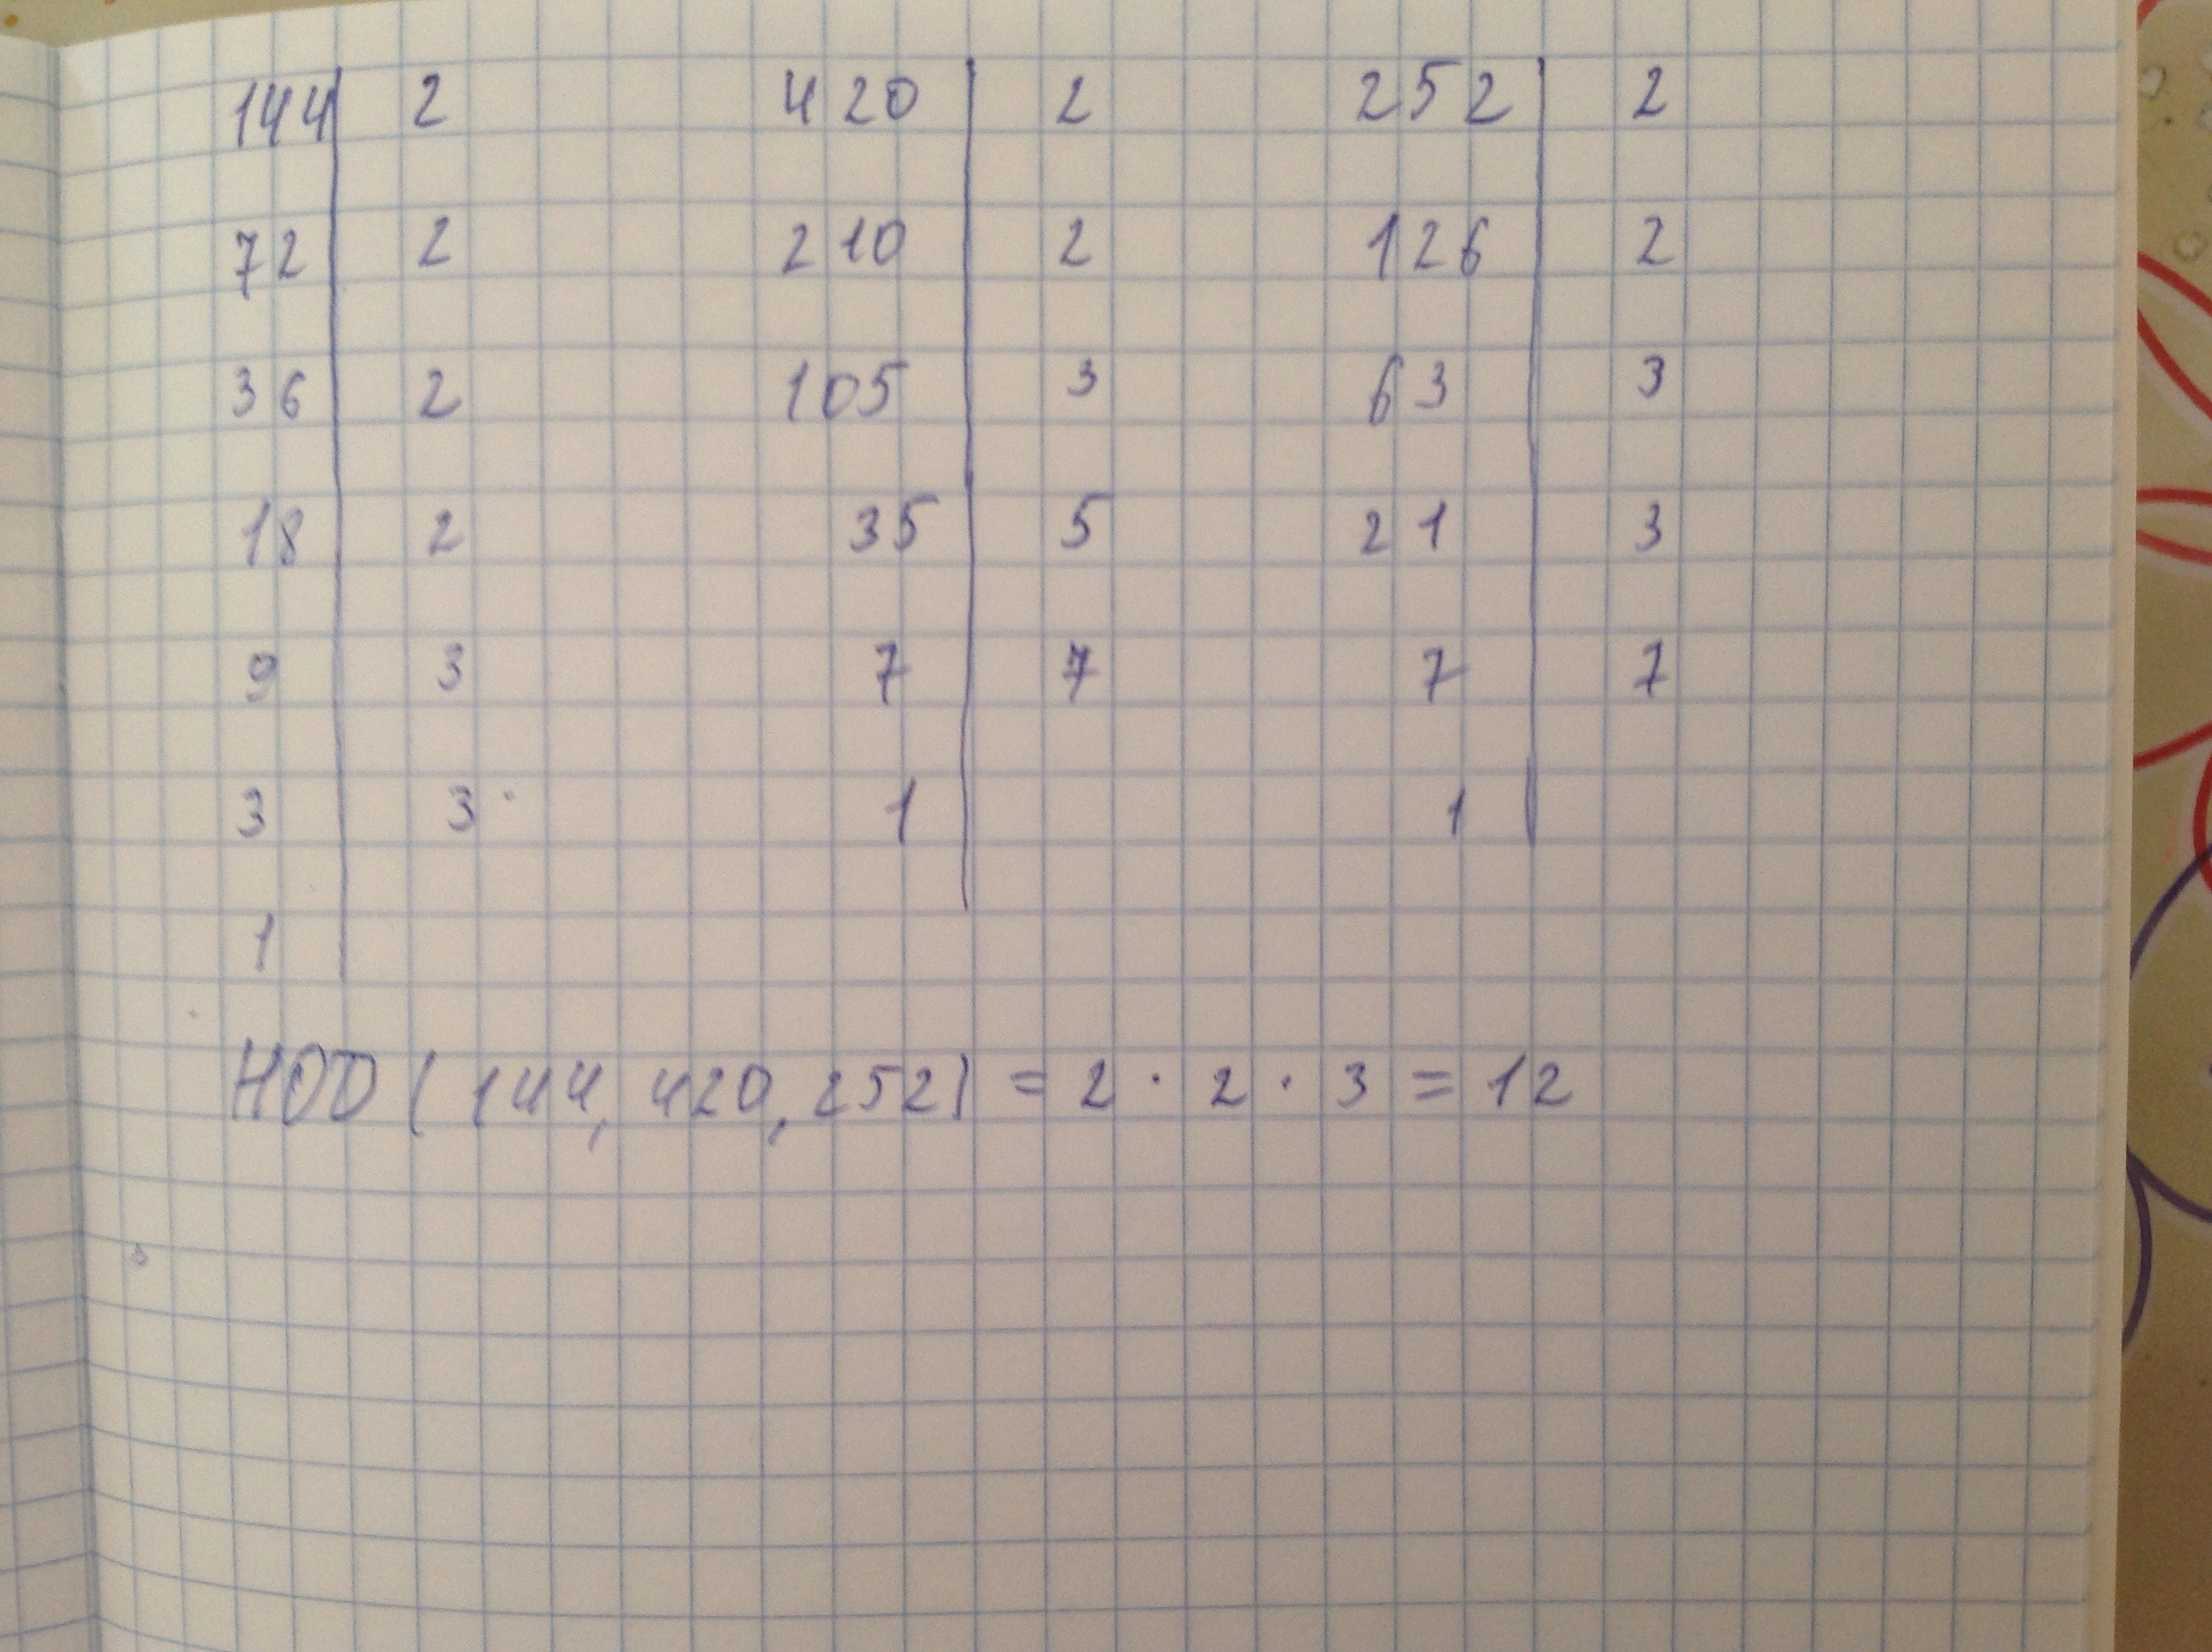 144 | 2 420 | 2 252 | 2
72 | 2 210 | 2 126 | 2
36 | 2 105 | 3 63 | 3
18 | 2 35 | 5 21 | 3
9 | 3 7 | 7 7 | 7
3 | 3 1 | 1 |
1 |
НОД (144, 420, 252) = 2 · 2 · 3 = 12